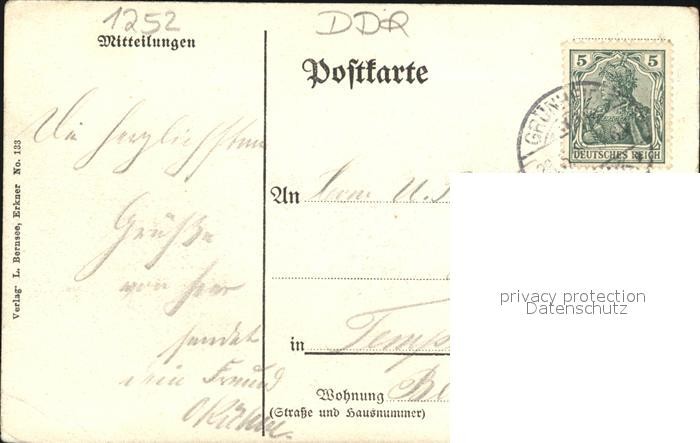 1252
DDR
Mitteilungen
Postkarte
5 5
DEUTSCHES REICH
GRÜNH
Die herzlichsten
Grüße
von hier
sendet
dein Freund
An Herrn
in Temp
Wohnung
(Straße und Hausnummer)
Verlag L. Bernsee, Erkner No. 133
privacy protection
Datenschutz